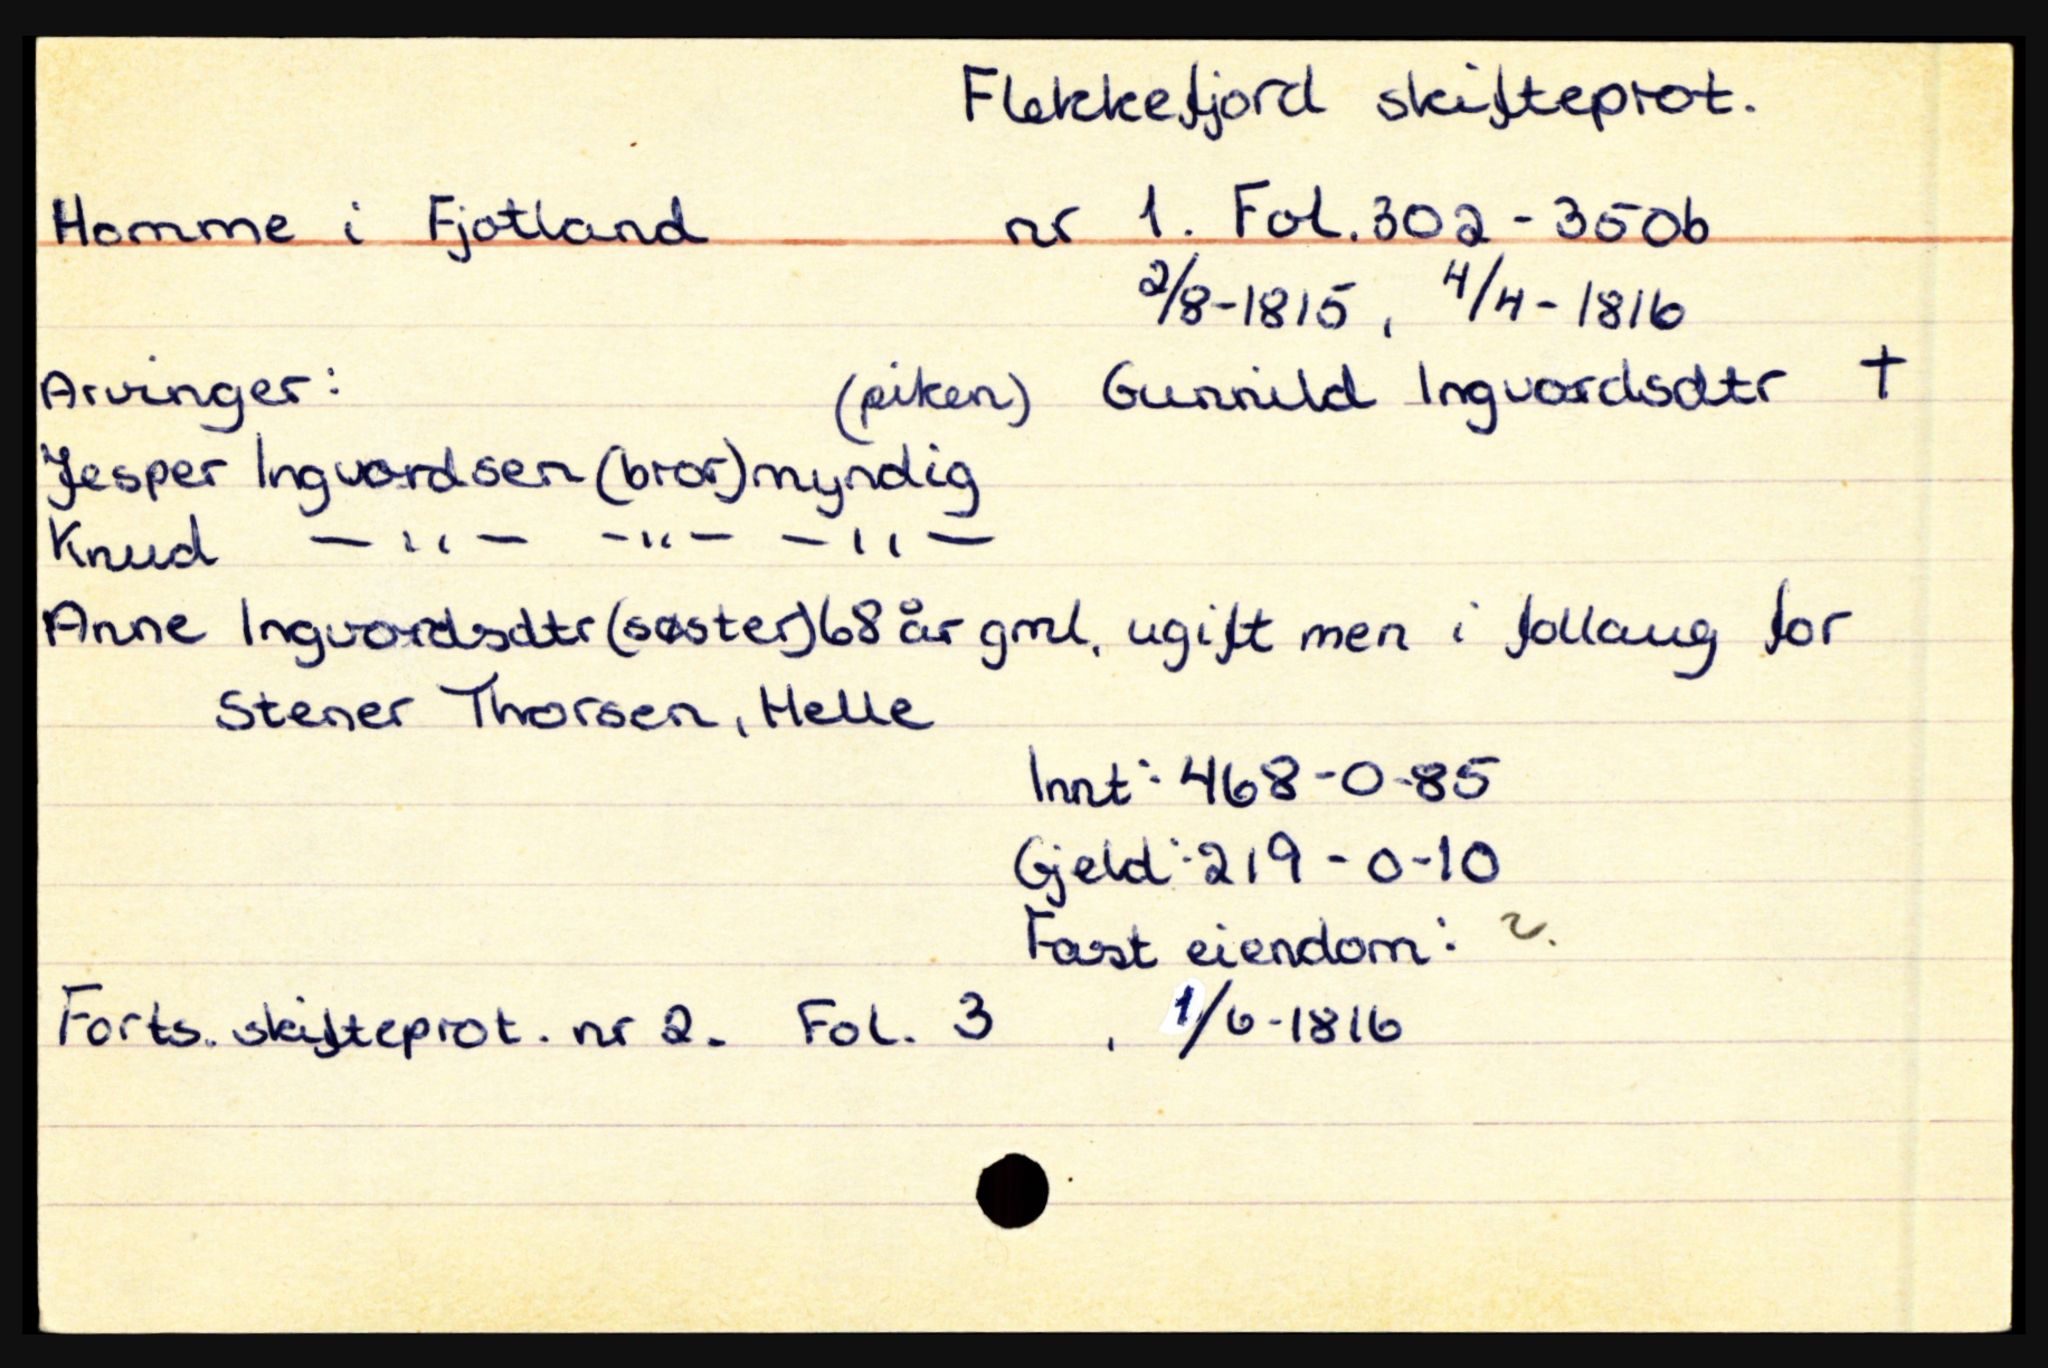 Flekkefjord skifteprot.
Homme i Fjotland nr 1. Fol. 302 - 350b
2/8-1815, 4/4-1816
Arvinger: (piken) Gunnild Ingvardsdtr †
Jesper Ingvardsen (bror) myndig
Knud — " — - " - — " —
Anne Ingvardsdtr (søster) 68 år gml, ugift men i follaug for
Stener Thorsen, Helle
Innt: 468-0-85
Gjeld: 219-0-10
Fast eiendom:
Forts. skifteprot. nr 2. Fol. 3 , 1/6-1816